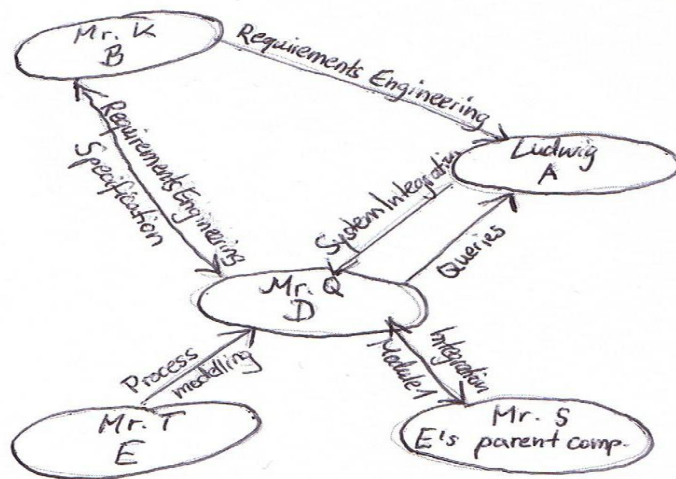 Mr. K
B
Requirements Engineering
Requirements Engineering
Specification
Ludwig
A
System Integration
Queries
Mr. Q
D
Process
modelling
Module 1
Integration
Mr. T
E
Mr. S
E's parent comp.